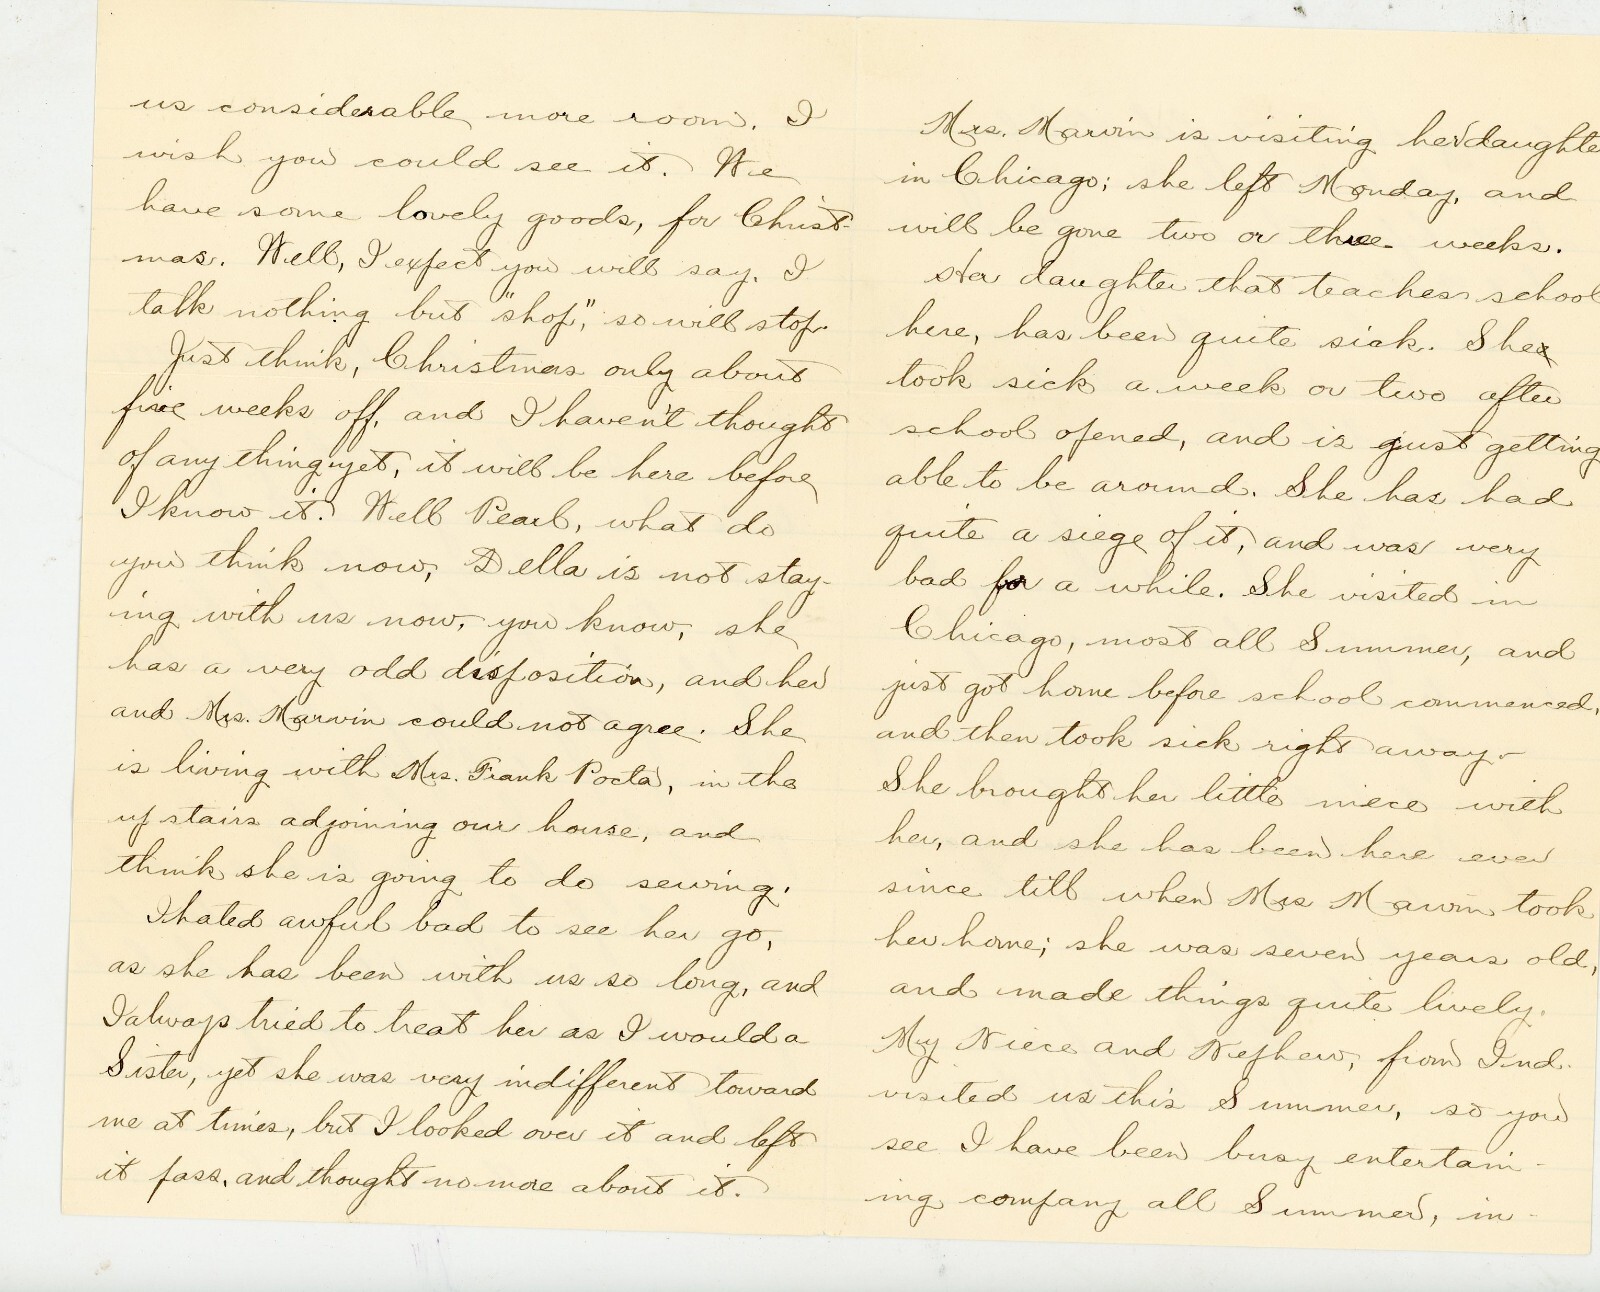 us considerable more room. I
wish you could see it. We
have some lovely goods, for Christ-
mas. Well, I expect you will say, I
talk nothing but "shop", so will stop.
Just think, Christmas only about
five weeks off, and I haven't thought
of any thing yet, it will be here before
I know it. Well Pearl, what do
you think now, Della is not stay-
ing with us now, you know, she
has a very odd disposition, and her
and Mrs. Marvin could not agree. She
is living with Mrs. Frank Pocta, in the
up stairs adjoining our house, and
think she is going to do sewing.
I hated awful bad to see her go,
as she has been with us so long, and
I always tried to treat her as I would a
Sister, yet she was very indifferent toward
me at times, but I looked over it and left
it pass, and thought no more about it.
Mrs. Marvin is visiting her daughte
in Chicago; she left Monday, and
will be gone two or three weeks.
Her daughter that teaches school
here, has been quite sick. She
took sick a week or two after
school opened, and is just getting
able to be around. She has had
quite a siege of it, and was very
bad for a while. She visited in
Chicago, most all Summer, and
just got home before school commenced,
and then took sick right away.
She brought her little niece with
her, and she has been here ever
since till when Mrs Marvin took
her home; she was seven years old,
and made things quite lively.
My Niece and Nephew, from Ind.
visited us this Summer, so you
see I have been busy entertain-
ing company all Summer, in-